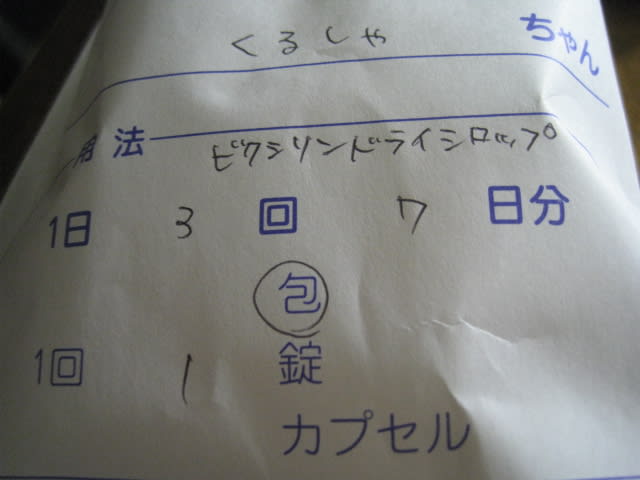 くるしゃ ちゃん
用法 ビクシリンドライシロップ
1日 3 回 7 日分
包
1回 1 錠
カプセル